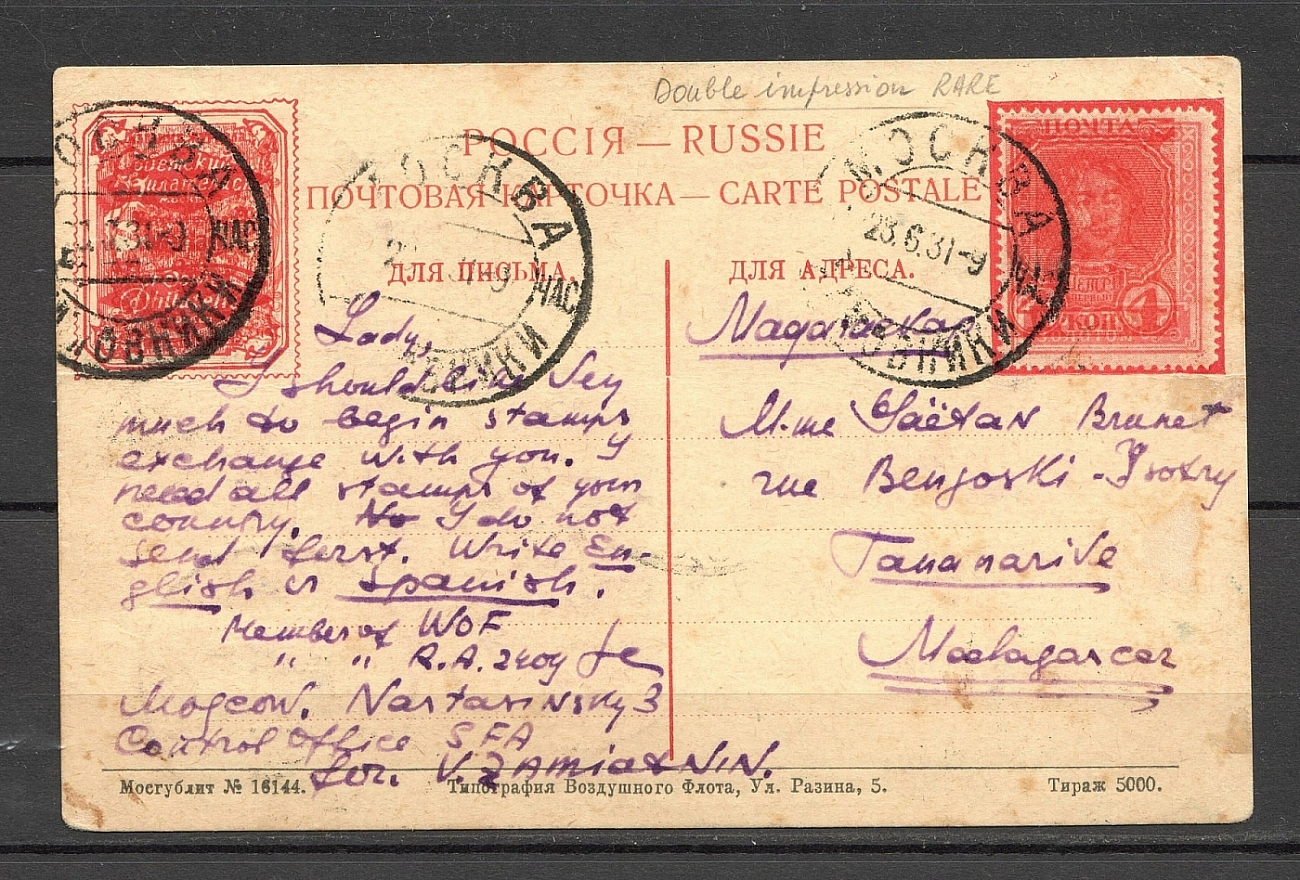 Double impression RARE
РОССІЯ — RUSSIE
ПОЧТОВАЯ КАРТОЧКА — CARTE POSTALE
ДЛЯ ПИСЬМА.
ДЛЯ АДРЕСА.
МОСКВА
31-9 ЧАС
МОСКВА
ЧАС
МОСКВА
23.6.31-9 ЧАС
ПОЧТА
4 КОП
Lady,
I should like vey
much to begin stamps
exchange with you. I
need all stamps of your
country. No I do not
send first. Write En-
glish or Spanish.
Member of WOF
" " R.A. 2404
Moscow. Nastasinsky 3
Control Office SFA
for. V. ZAmiatNiN.
Мадагаскар
M-me Gaëtan Brunet
rue Benjoski - Isotry
Tananarive
Madagascar
Мосгублит № 16144.
Типография Воздушного Флота, Ул. Разина, 5.
Тираж 5000.